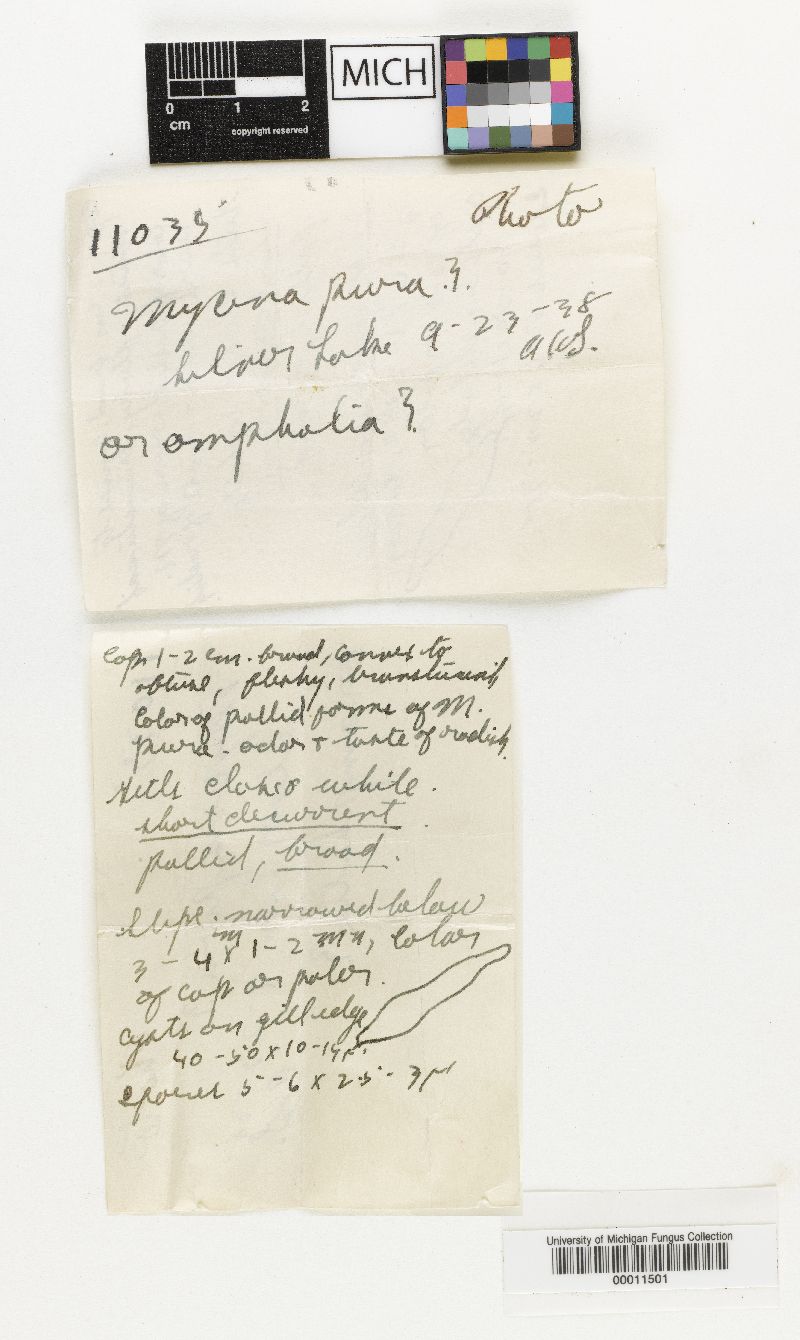 0 1 2
cm
copyright reserved
MICH
11035
Photo
Mycena pura?
Silver Lake 9-23-38
AHS.
or omphalia?
Cap 1-2 cm. broad, convex to
obtuse, fleshy, translucent
Color of pallid forms of M.
pura - odor & taste of radish.
Gills close white.
short decurrent.
pallid, broad.
Stipe. narrowed below
3-4 m x 1-2 mm, color
of cap or paler.
cysts on gill edge
40-50 x 10-14 µ.
spores 5-6 x 2.5-3 µ
University of Michigan Fungus Collection
00011501